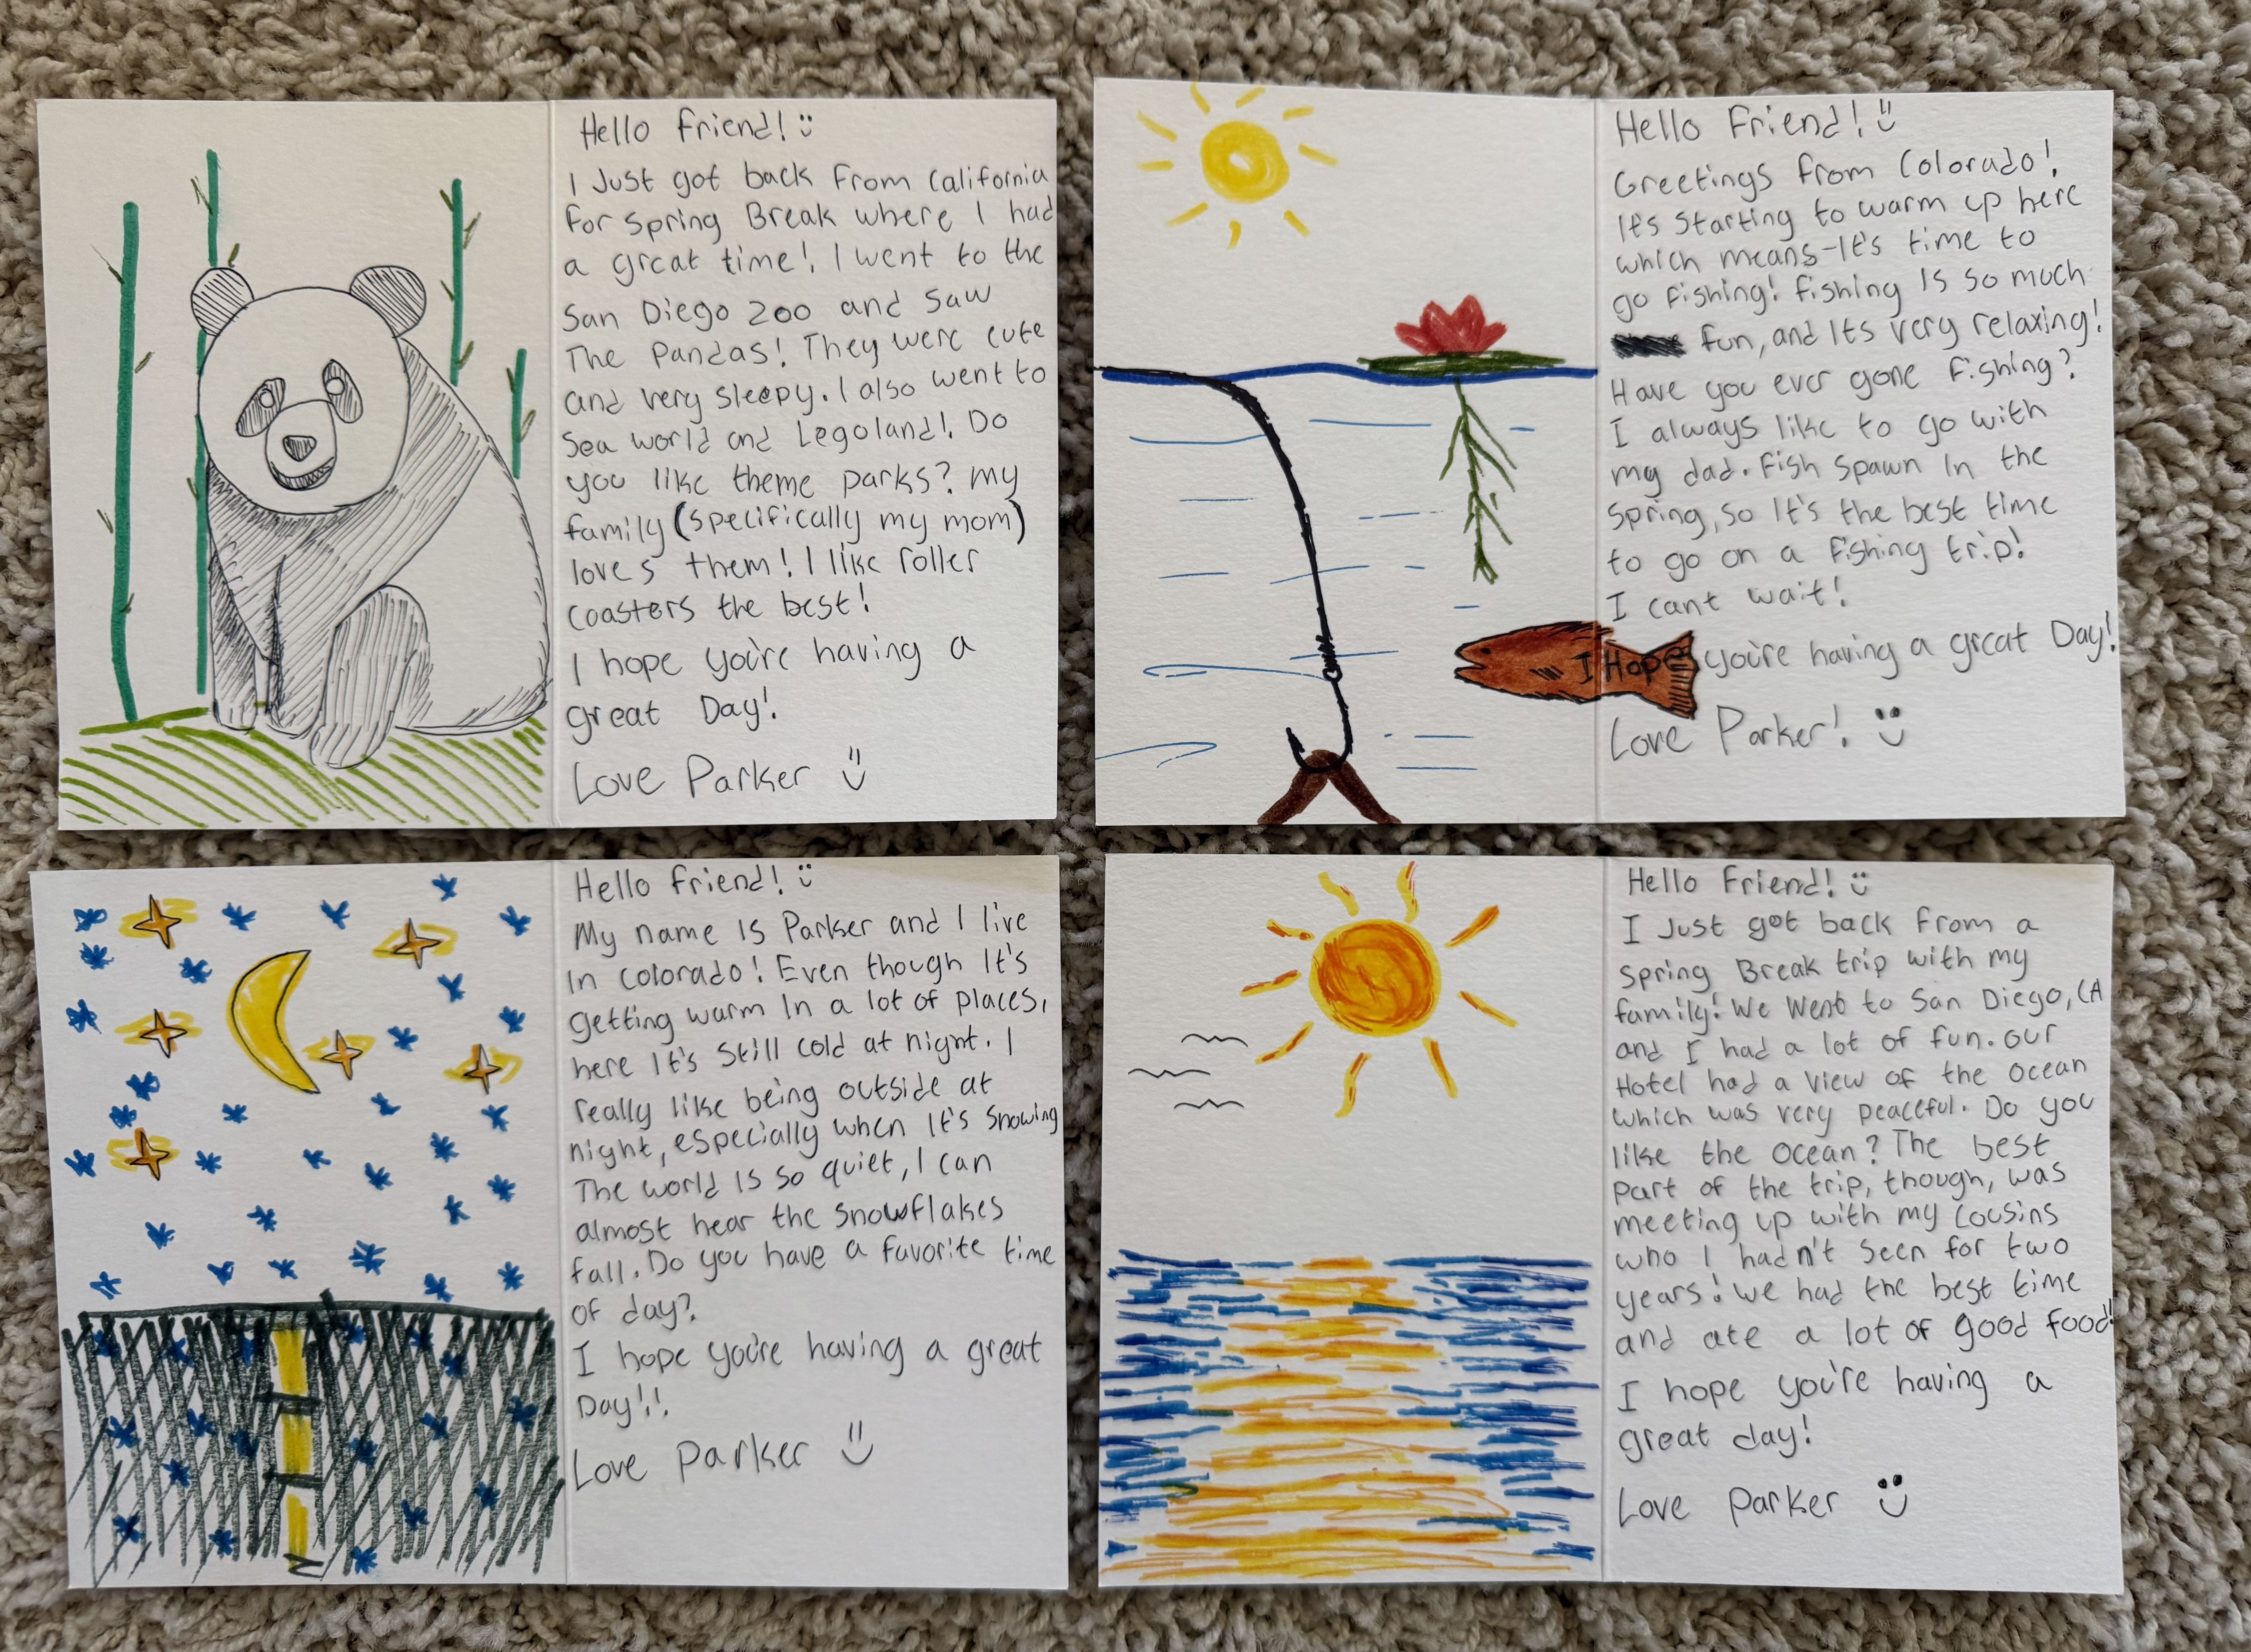 Hello Friend!
I Just got back From California
For Spring Break where I had
a great time! I went to the
San Diego Zoo and Saw
The Pandas! They were cute
and very sleepy. I also went to
Sea world and Legoland! Do
you like theme parks? my
family (specifically my mom)
loves them! I like roller
coasters the best!
I hope you're having a
great Day!
Love Parker
Hello Friend!
Greetings from Colorado!
It's Starting to warm up here
which means-It's time to
go fishing! fishing Is so much
fun, and Its very relaxing!
Have you ever gone fishing?
I always like to go with
my dad. Fish spawn In the
Spring, so It's the best time
to go on a fishing trip!
I cant wait!
I Hope you're having a great Day!
Love Parker!
Hello Friend!
My name Is Parker and I live
In Colorado! Even though It's
getting warm In a lot of places,
here It's Still cold at night. I
really like being outside at
night, especially when It's Snowing
The world Is so quiet, I can
almost hear the Snowflakes
fall. Do you have a favorite time
of day?
I hope you're having a great
Day!!
Love Parker
Hello Friend!
I Just got back From a
Spring Break trip with my
family! We Went to San Diego, CA
and I had a lot of fun. Our
Hotel had a view of the Ocean
which was very peaceful. Do you
like the Ocean? The best
Part of the trip, though, was
meeting up with my cousins
who I hadn't seen for two
years! We had the best time
and ate a lot of good food!
I hope you're having a
great day!
Love Parker